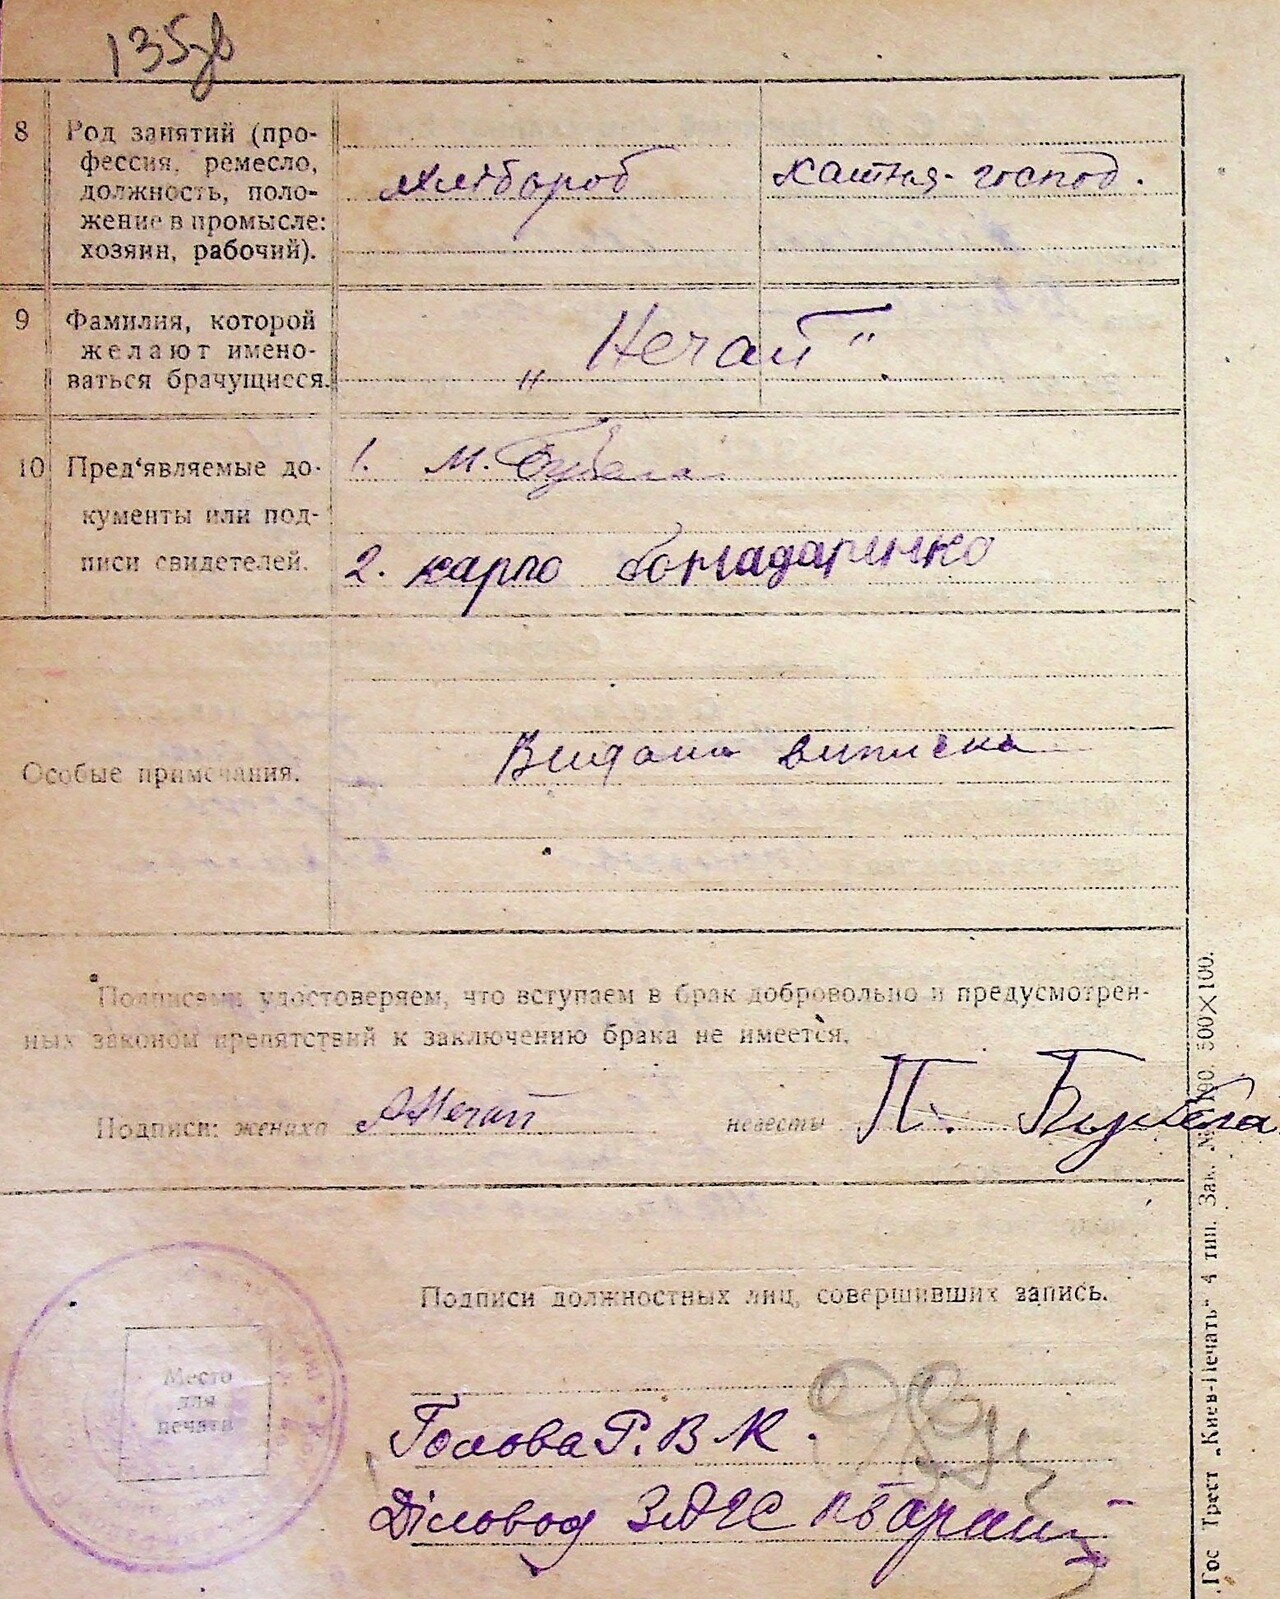 135зв
8 Род занятий (про-
фессия, ремесло,
должность, поло-
жение в промысле:
хозяин, рабочий).
хлібороб хатня-господ.
9 Фамилия, которой
желают имено-
ваться брачущиеся.
„Нечай".
10 Пред'являемые до-
кументы или под-
писи свидетелей.
1. М. Бубела
2. карпо бонадаренко
Особые примечания.
Видана виписка
Подписями удостоверяем, что вступаем в брак добровольно и предусмотрен-
ных законом препятствий к заключению брака не имеется.
Подписи: жениха Нечай невесты П. Бубела
Подписи должностных лиц, совершивших запись.
Место
для
печати
Голова Р.В.К.
Діловод ЗАГС
Гос Трест „Киев-Печать" 4 тип. Зак. 500×100.